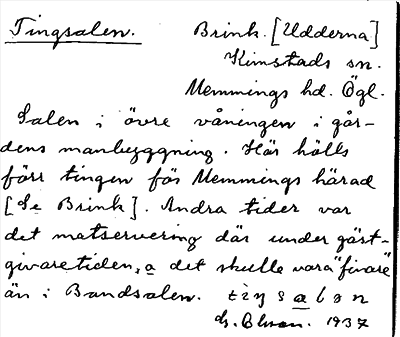 Tingsalen. Brink. [Udderna]
Kimstads sn.
Memmings hd. Ögl.
Salen i övre våningen i går-
dens manbyggning. Här hölls
förr tingen för Memmings härad
[Se Brink]. Andra tider var
det matservering där under gäst-
givaretiden, a det skulle vara "finare"
än i Bandsalen.
1937